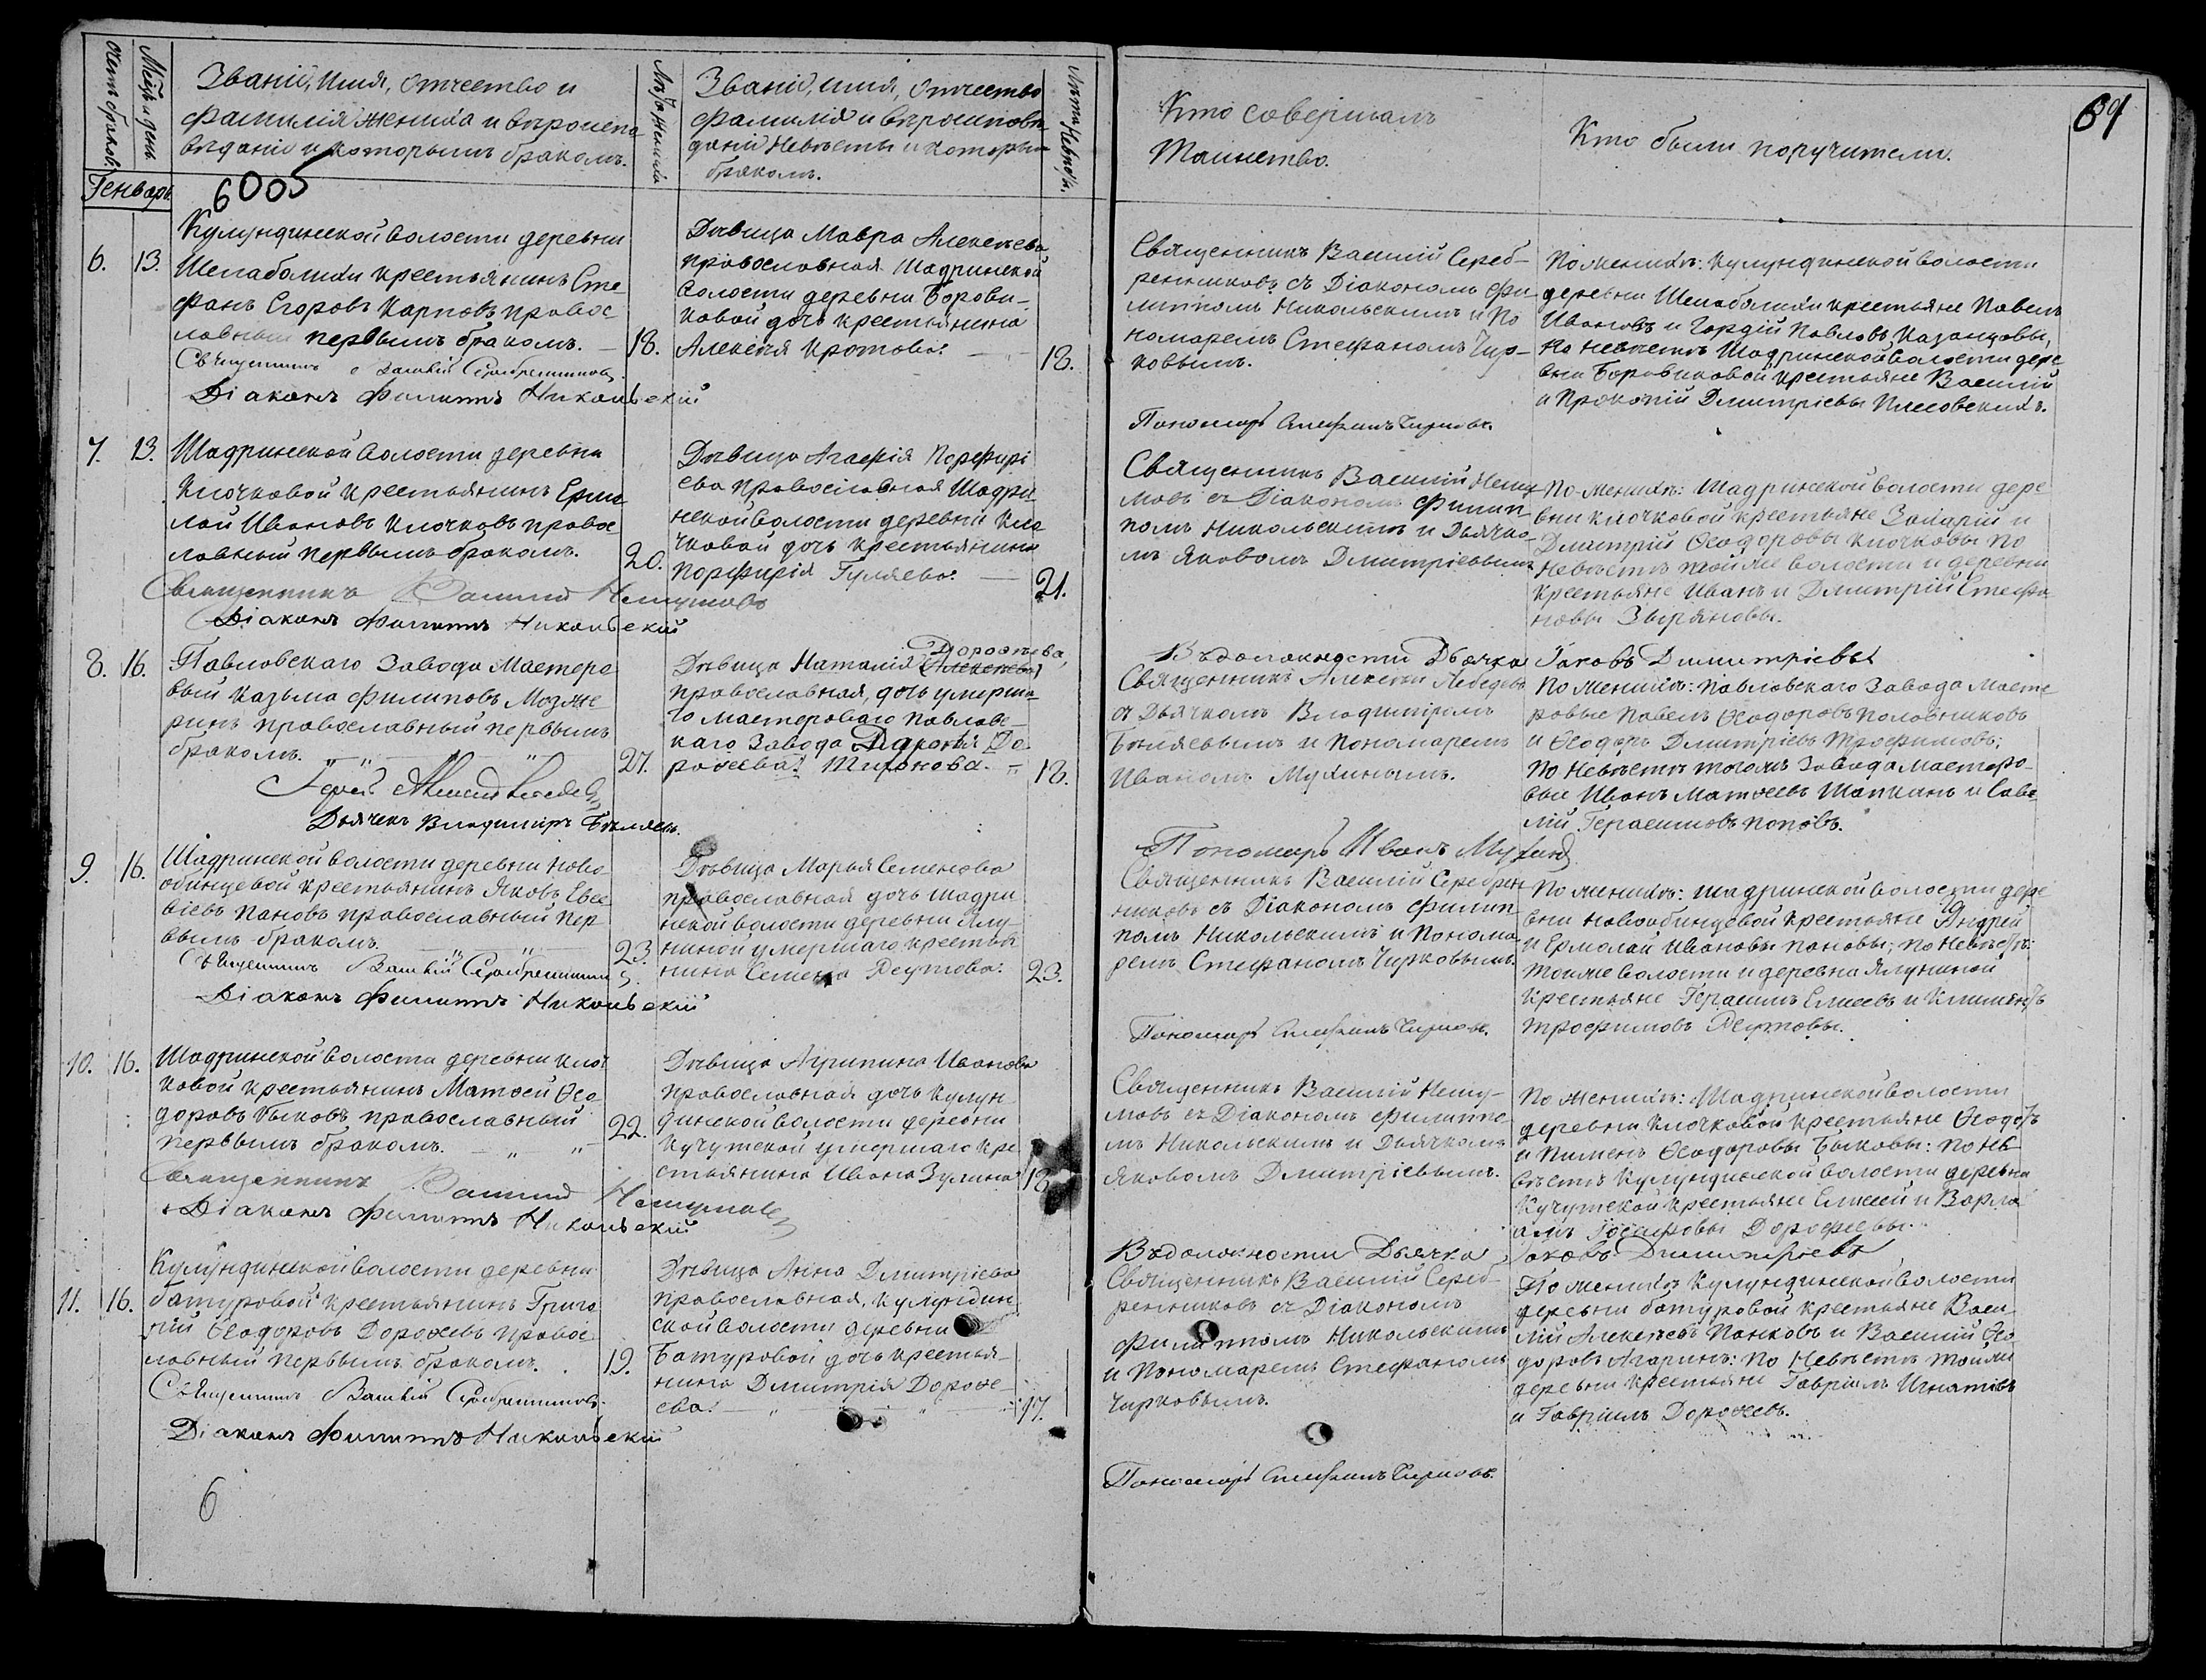 Счетъ браковъ.
Месяцъ и день
Званіе, имя, отчество и
фамилія жениха и вѣроиспо
вѣданіе и которымъ бракомъ.
Лѣта жениха
Званіе, имя, отчество
фамилія и вѣроисповѣ
даніе Невѣсты и которы
бракомъ.
Лѣта Невѣсты.
Кто совершалъ
Таинство.
Кто были поручители.
Генварь
6005
6. 13.
Кулундинской волости деревни
Шелаболихи крестьянинъ Сте
фанъ Егоровъ Карповъ правос
лавный первымъ бракомъ. 18.
Священникъ Василій Серебренниковъ
Діаконъ Филиппъ Никольскій
Дѣвица Мавра Алексѣева
православная Шадринской
волости деревни Борови-
ковой дочь крестьянина
Алексѣя Кротова. 18.
Священникъ Василій Сереб-
ренниковъ съ Діакономъ Фи-
липпомъ Никольскимъ и По
номаремъ Стефаномъ Чир-
ковымъ.
Пономарь Стефанъ Чирковъ.
По женихѣ: Кулундинской волости
деревни Шелаболихи крестьяне Павелъ
Ивановъ и Гордій Павловъ Казанцовы,
По невѣстѣ Шадринской волости дере
вни Боровиковой крестьяне Василій
и Прокопій Дмитріевы Плесовскихъ.
7. 13.
Шадринской волости деревни
Клочковой крестьянинъ Ермо
лай Ивановъ Клочковъ правос
лавный первымъ бракомъ. 20.
Священникъ Василій
Діаконъ Филиппъ Никольскій
Дѣвица Агафія Порфирі
ева православная Шадри
нской волости деревни Кло
чковой дочь крестьянина
Порфирія Гуляева. 21.
Священникъ Василій
мовъ съ Діакономъ Филип
помъ Никольскимъ и Дьячко
мъ Яковомъ Дмитріевымъ
Въ должности Дьячка Іаковъ Димитріевъ
По женихѣ: Шадринской волости дере
вни Клочковой крестьяне Захарій и
Дмитрій Ѳеодоровы Клочковы по
Невѣстѣ той же волости и деревни
крестьяне Иванъ и Дмитрій Стефа
новы Зыряновы.
8. 16.
Павловскаго Завода Мастеро
вый Казьма Филиповъ Мозже
ринъ православный первымъ
бракомъ. 27.
Іерей Алексій Лебедевъ
Дьячекъ Владимиръ Бѣляевъ.
Дороѳѣева,
Дѣвица Наталія (Алексѣева)
православная, дочь умерша
го мастероваго Павловс-
каго Завода До
роѳеева Тихонова. 18.
Священникъ Алексѣй Лебедевъ
съ Дьячкомъ Владимиромъ
Бѣляевымъ и Пономаремъ
Иваномъ Мухинымъ.
Пономарь Иванъ Мухинъ
По женихѣ: Павловскаго Завода Масте
ровые Павелъ Ѳеодоровъ Половниковъ
и Ѳеодоръ Дмитріевъ Трофимовъ;
По Невѣстѣ тогожъ Завода Мастеро-
вые Иванъ Матѳеевъ Шапкинъ и Саве-
лій Герасимовъ Поповъ.
9. 16.
Шадринской волости деревни Ново
обинцевой крестьянинъ Яковъ Евсе
віевъ Пановъ православный пер
вымъ бракомъ. 23.
Священникъ Василій Серебренниковъ
Діаконъ Филиппъ Никольскій
Дѣвица Марья Семенова
православная дочь Шадри
нской волости деревни Ялу
ниной умершаго крестья
нина Семена Реутова. 23.
Священникъ Василій Серебрен
никовъ съ Діакономъ Филип
помъ Никольскимъ и Понома
ремъ Стефаномъ Чирковымъ.
Пономарь Стефанъ Чирковъ.
По женихѣ: Шадринской волости дере
вни Новообинцевой крестьяне Андрей
и Ермолай Ивановы Пановы; по Невѣстѣ:
тойже волости и деревни Ялуниной
крестьяне Герасимъ Елисеевъ и Климентъ
Трофимовъ Реутовы.
10. 16.
Шадринской волости деревни Клоч
ковой крестьянинъ Матѳей Ѳео
доровъ Быковъ православный
первымъ бракомъ. 22.
Священникъ Василій
Діаконъ Филиппъ Никольскій
Дѣвица Агрипина Иванова
православная дочь Кулун
динской волости деревни
Кучутской умершаго кре
стьянина Ивана Зулина 18
Священникъ Василій
мовъ съ Діакономъ Филиппо
мъ Никольскимъ и Дьячкомъ
Яковомъ Дмитріевымъ.
Въ должности Дьячка Іаковъ Димитріевъ
По женихѣ: Шадринской волости
деревни Клочковой крестьяне Ѳеодотъ
и Пименъ Ѳеодоровы Быковы: по Не
вѣстѣ Кулундинской волости деревни
Кучутской крестьяне Елисей и Варла
амъ Іосифовы Дорофеевы.
11. 16.
Кулундинской волости деревни
Батуровой крестьянинъ Григо
рій Ѳеодоровъ Дороѳеевъ правос
лавный первымъ бракомъ. 19.
Священникъ Василій Серебренниковъ
Діаконъ Филиппъ Никольскій
Дѣвица Анна Дмитріева
православная, Кулундин
ской волости деревни
Батуровой дочь крестья-
нина Дмитрія Дороѳе-
ева. 17.
Священникъ Василій Сереб-
ренниковъ съ Діакономъ
Филиппомъ Никольскимъ
и Пономаремъ Стефаномъ
Чирковымъ.
Пономарь Стефанъ Чирковъ.
По женихѣ Кулундинской волости
деревни Батуровой крестьяне Васи-
лій Алексѣевъ Панковъ и Василій Ѳео
доровъ Агаринъ: по Невѣстѣ той же
деревни крестьяне Гавріилъ Игнатіевъ
и Гавріилъ Дороѳеевъ.
6